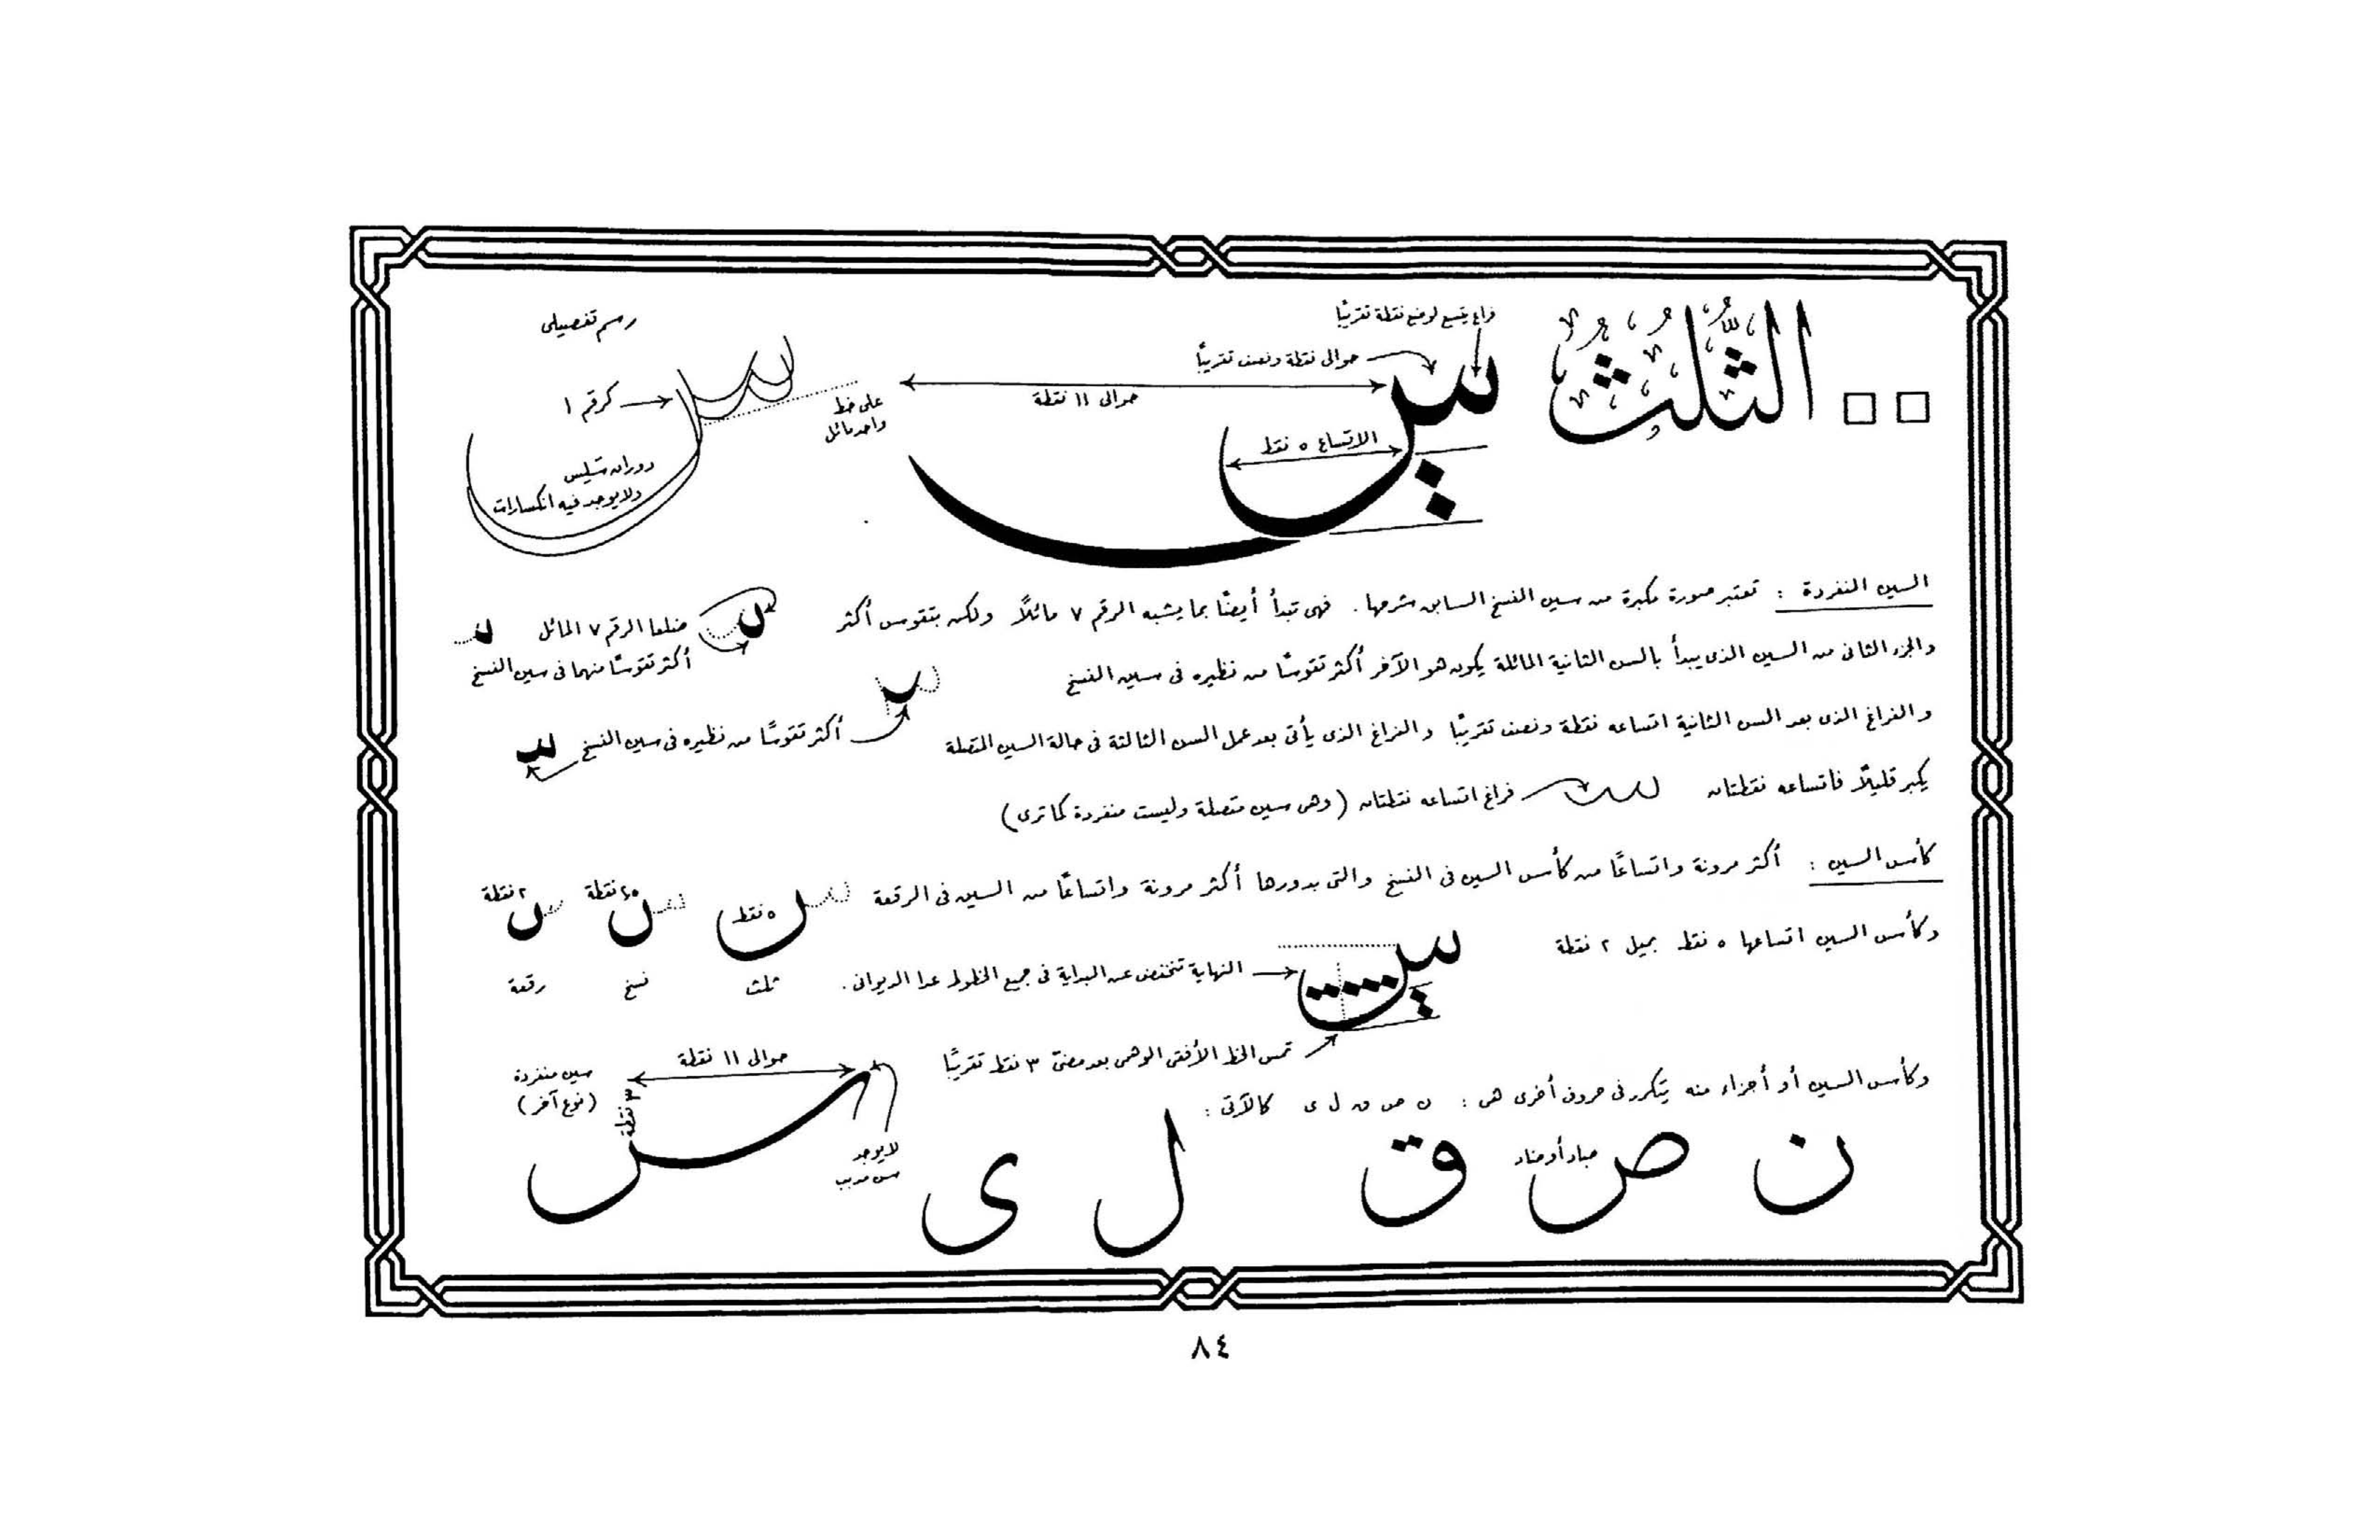 الثُّلُثُ
فراغ يتسع لوضع نقطة تقريبًا
حوالى نقطة ونصف تقريبًا
حوالى ١١ نقطة
الاتساع ٥ نقط
رسم تفصيلى
كرقم ١
على خط
واحد مائل
دوران سَلِس
ولا يوجد فيه انكسارات
السين المنفردة : تعتبر صورة مكبرة من سين النسخ السابق شرحها . فهى تبدأ أيضًا بما يشبه الرقم ٧ مائلًا ولكن بتقوس أكثر
ضلعا الرقم ٧ المائل
أكثر تقوسًا منهما فى سين النسخ
والجزء الثانى من السين الذى يبدأ بالسن الثانية المائلة يكون هو الآخر أكثر تقوسًا من نظيره فى سين النسخ
أكثر تقوسًا من نظيره فى سين النسخ
والفراغ الذى بعد السن الثانية اتساعه نقطة ونصف تقريبًا والفراغ الذى يأتى بعد عمل السن الثالثة فى حالة السين المتصلة
يكبر قليلًا فاتساعه نقطتان
فراغ اتساعه نقطتان (وهى سين متصلة وليست منفردة كما ترى)
كأس السين : أكثر مرونة واتساعًا من كأس السين فى النسخ والتى بدورها أكثر مرونة واتساعًا من السين فى الرقعة
٥ نقط
٢ نقطة
ثلث
نسخ
رقعة
وكأس السين اتساعها ٥ نقط بميل ٢ نقطة
س
النهاية تنخفض عن البداية فى جميع الخطوط عدا الديوانى .
تمس الخط الأفقى الوهمى بعد مضىّ ٣ نقط تقريبًا
وكأس السين أو أجزاء منه يتكرر فى حروف أخرى هى : ن ص ق ل ى كالآتى :
حوالى ١١ نقطة
٣ نقطة
سين منفردة
(نوع آخر)
لا يوجد
سن مدبب
ن ص ق ل ى س
صاد أو ضاد
٨٤